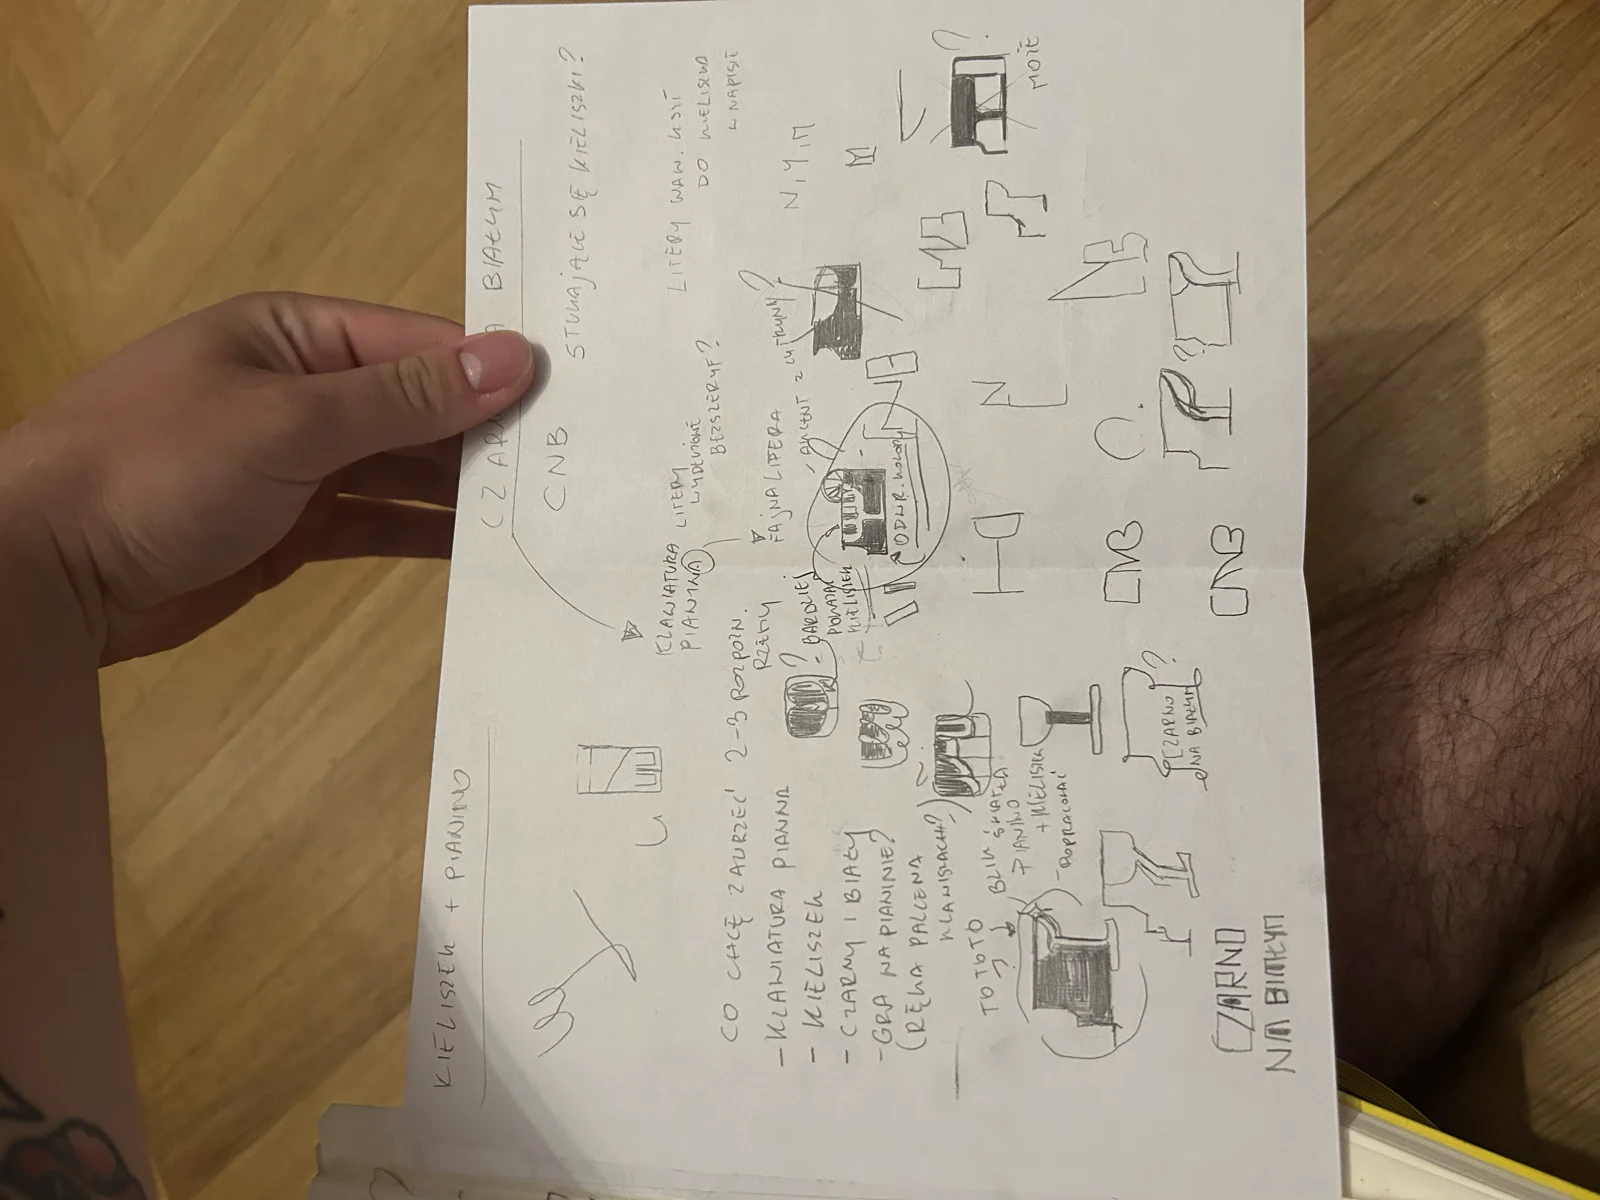 KIELISZEK + PIANINO
CO CHCĘ ZAWRZEĆ 2-3 ROZPOZN. RZECZY
- KLAWIATURA PIANINA
- KIELISZEK
- CZARNY I BIAŁY
- GRA NA PIANINIE?
(RĘKA PALCE NA
KLAWISZACH?)
TO TO TO
BLIK ŚWIATŁA
PIANINO
+ KIELISZEK
- DOPRACOWAĆ
CZARNO
NA BIAŁYM
?
CZARNO
NA BIAŁYM
BIAŁYM
CNB
STUKAJĄCE SIĘ KIELISZKI?
KLAWIATURA
PIANINA
LITERY
BEZSZERYF?
LITERY
DO KIELISZKA
W NAPISIE
FAJNA LITERA
N, Y, M
? BARDZIEJ
POKAZAĆ
KIELISZEK
ODWR. KOLORY
?
MOŻE
?
N
CNB
CNB